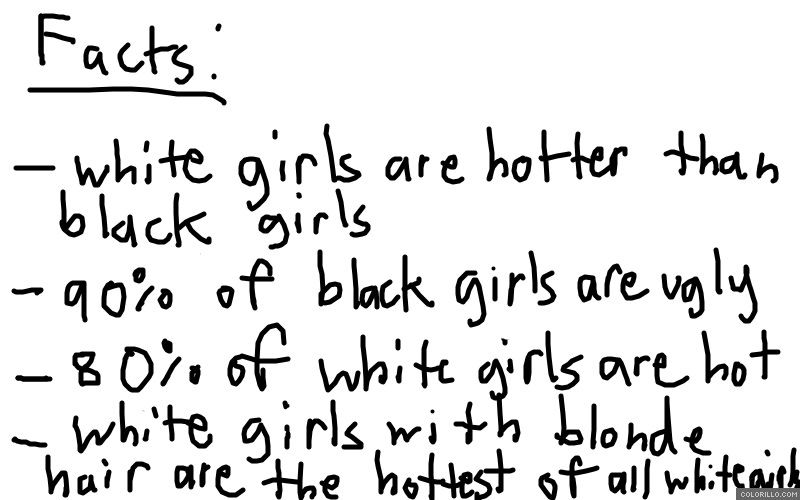 Facts:
- white girls are hotter than
black girls
- 90% of black girls are ugly
- 80% of white girls are hot
- white girls with blonde
hair are the hottest of all white girls
COLORILLO.COM